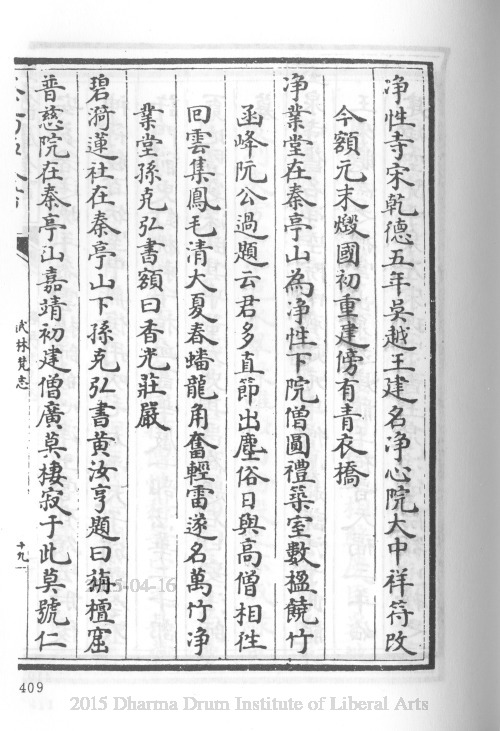 净性寺宋乾德五年吳越王建名净心院大中祥符改
今額元末燬國初重建傍有青衣橋
净業堂在秦亭山為净性下院僧圓禮築室數楹饒竹
函峰阮公過題云君多直節出塵俗日與高僧相徃
回雲集鳳毛清大夏春蟠龍角奮輕雷遂名萬竹净
業堂孫克弘書額曰香光莊嚴
碧漪蓮社在秦亭山下孫克弘書黄汝亨題曰蒴檀窟
普慈院在秦亭山嘉靖初建僧廣莫棲寂于此莫號仁
武林梵志
十九
409
2015-04-16
2015 Dharma Drum Institute of Liberal Arts